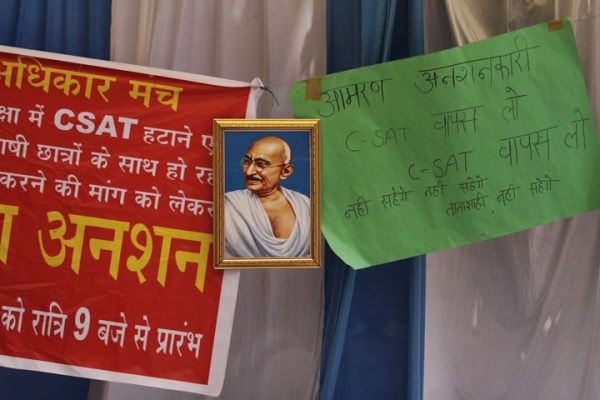 अधिकार मंच
क्षा में CSAT हटाने ए
भाषी छात्रों के साथ हो रह
करने की मांग को लेकर
अनशन
को रात्रि 9 बजे से प्रारंभ
आमरण अनशनकारी
C-SAT वापस लो
C-SAT वापस लो
नही सहेगे नही सहेगे
तानाशाही, नही सहेगे